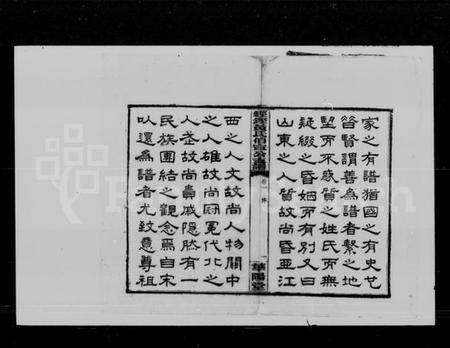 家之有譜猶國之有史也
昔賢謂善為譜者繫之地
望而不惑質之姓氏而無
疑綴之昏姻而有別又曰
山東之人質故尚昏亞江
伯宣公支譜
卷一 序
華陽堂
西之人文故尚人物關中
之人雄故尚冠冕代北之
人武故尚貴戚隱然有一
民族團結之觀念焉自宋
以還為譜者尤致意尊祖